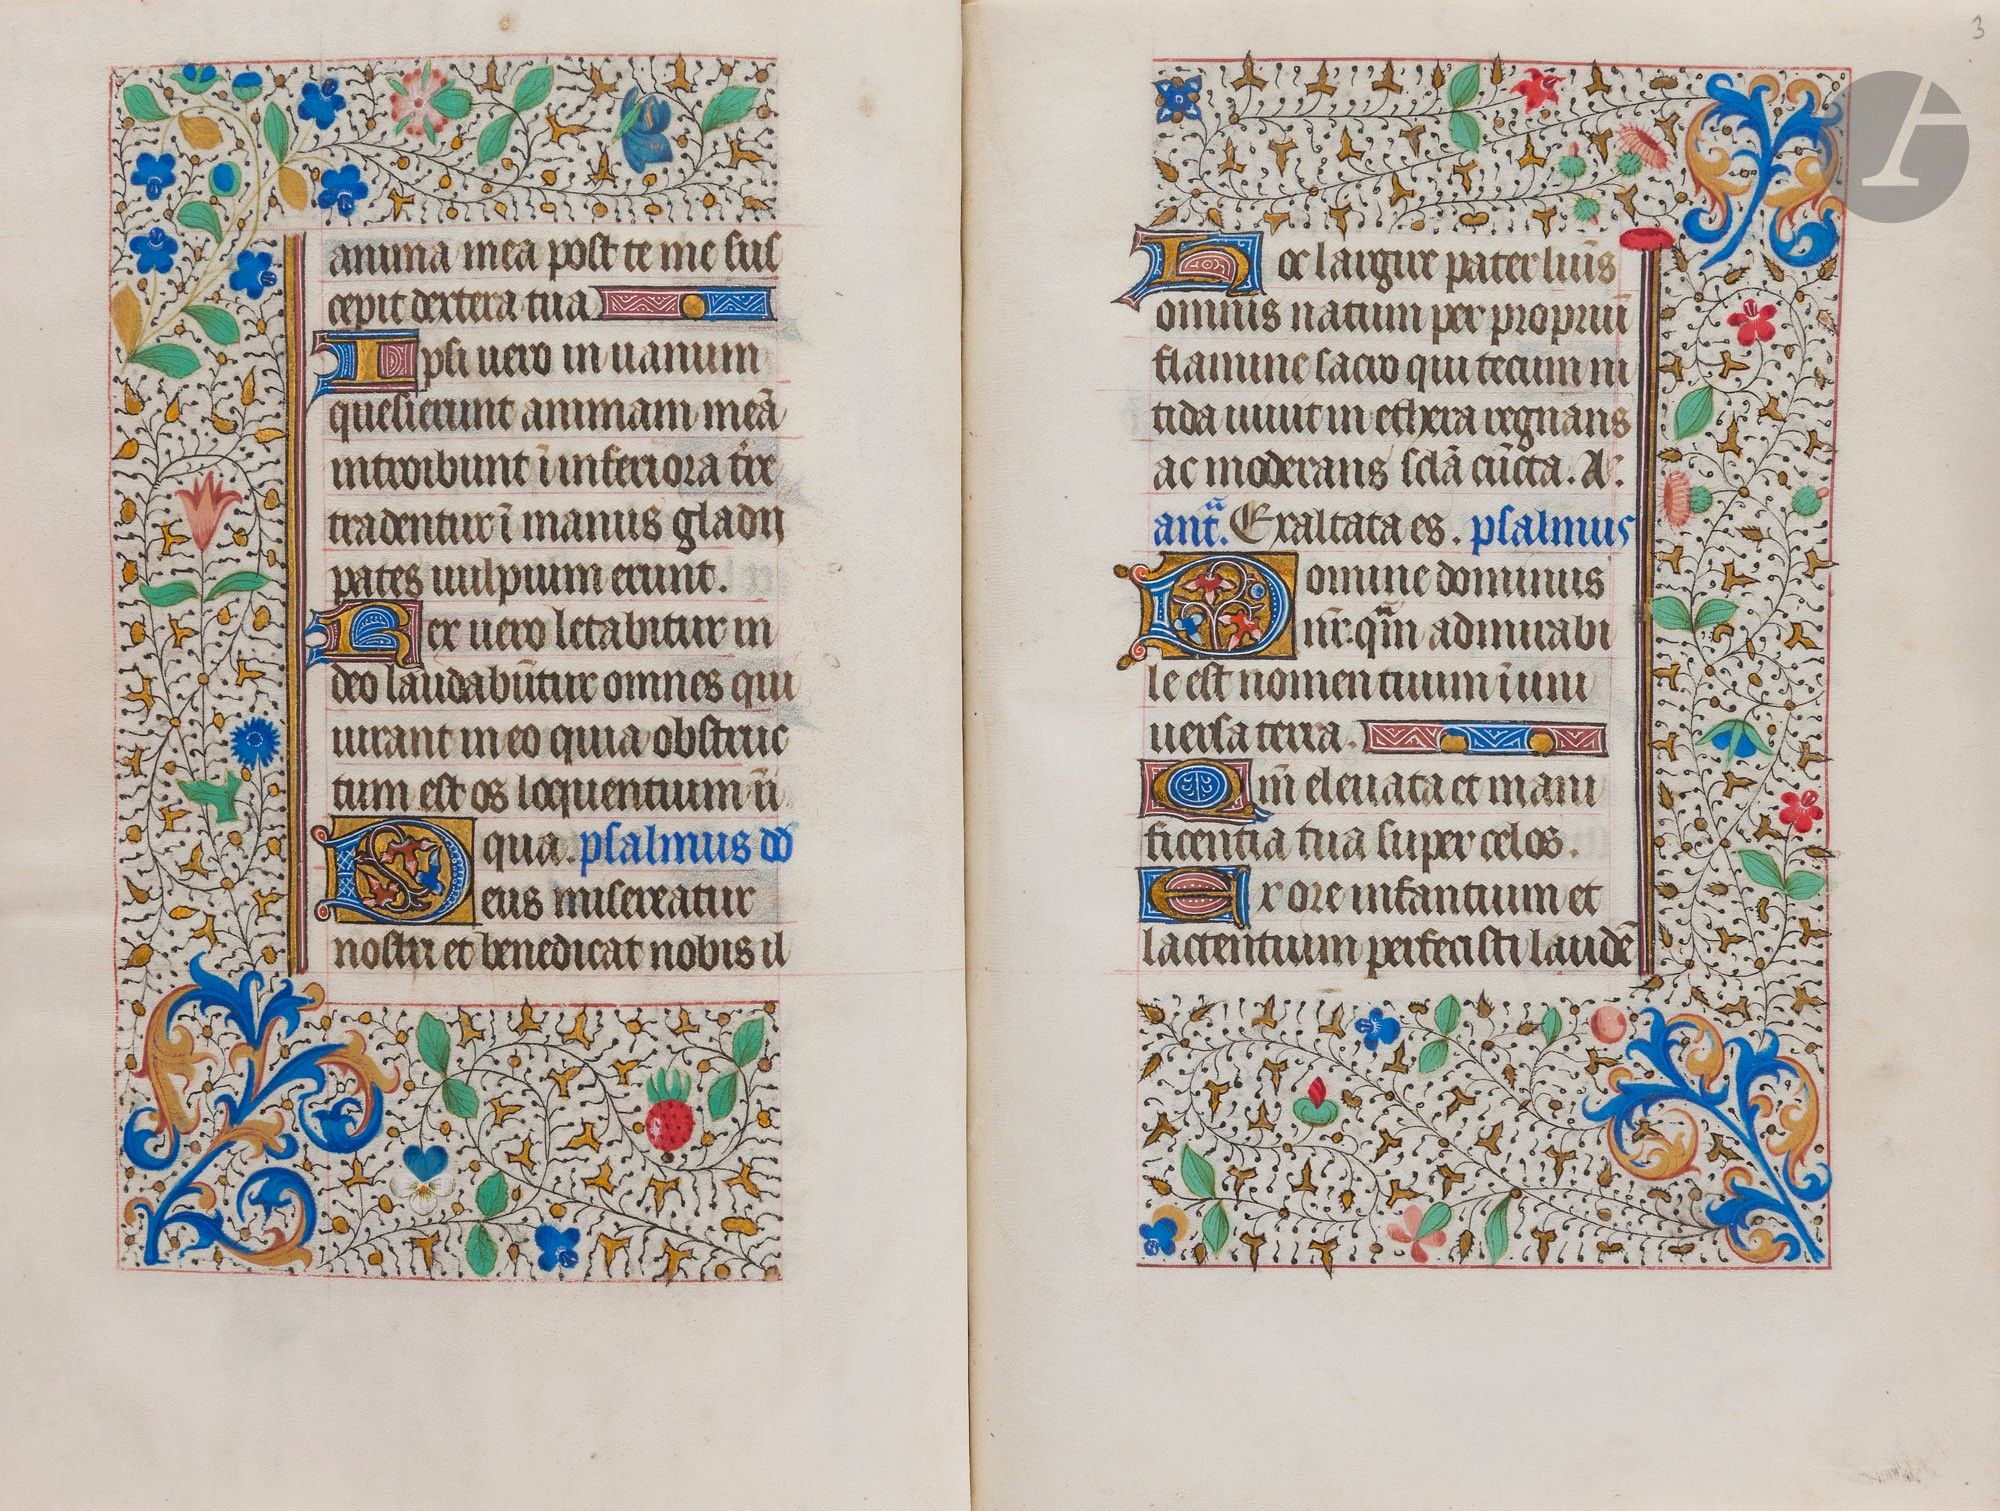 anima mea post te me sus
cepit dextera tua
Ipsi uero in uanum
quesierunt animam meā
introibunt ī inferiora t̄re
tradentur ī manus gladii
partes uulpium erunt.
Rex uero letabitur in
deo laudabūtur omnes qui
iurant in eo quia obstruc
tum est os loquentium in
iqua. psalmus dd
Deus misereatur
nostri et benedicat nobis il
3
Hec largire pater
omnis natum per propriū
flamine sacro qui tecum ni
tida uiuit in ethera regnans
ac moderans sclā cūcta. A.
ant. Exaltata es. psalmus
Domine dominus
nr̄. qm̄ admirabi
le est nomen tuum ī uni
uersa terra.
Qm̄ eleuata et mani
ficentia tua super celos.
Ex ore infantium et
lactentium perfecisti laudē